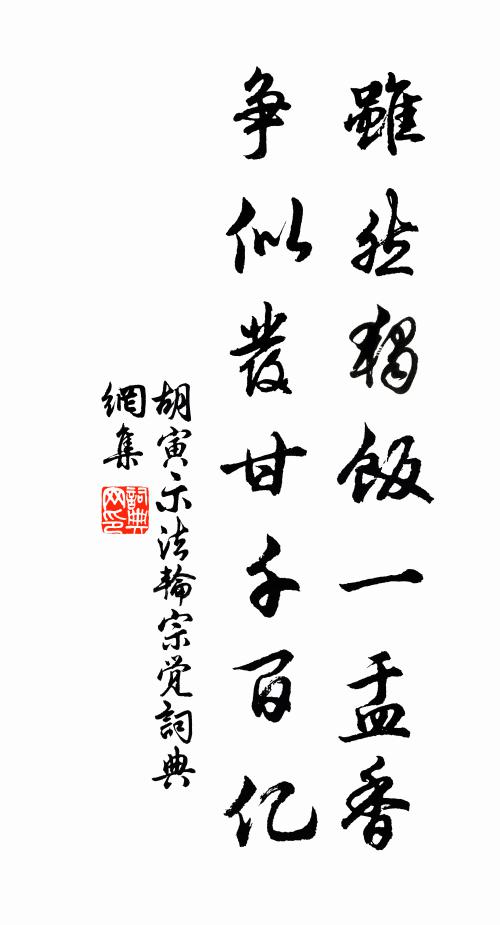 雖然獨飯一盂香
争似發甘千百亿
胡寅示法輪宗覺詞典
網集
詞典
网印